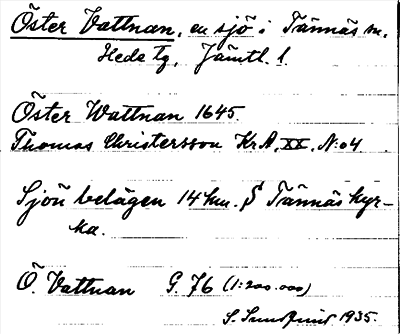 Öster Vattnan, en sjö i Tännäs sn.
Heds tg, Jämtl. l.
Öster Wattnan 1645.
Thomas Christersson Kr.A. XX. N:o 4
Sjön belägen 14 km. S Tännäs kyr-
ka.
Ö. Vattnan G. 76 (1:200.000)
S. Sundqvist 1935.